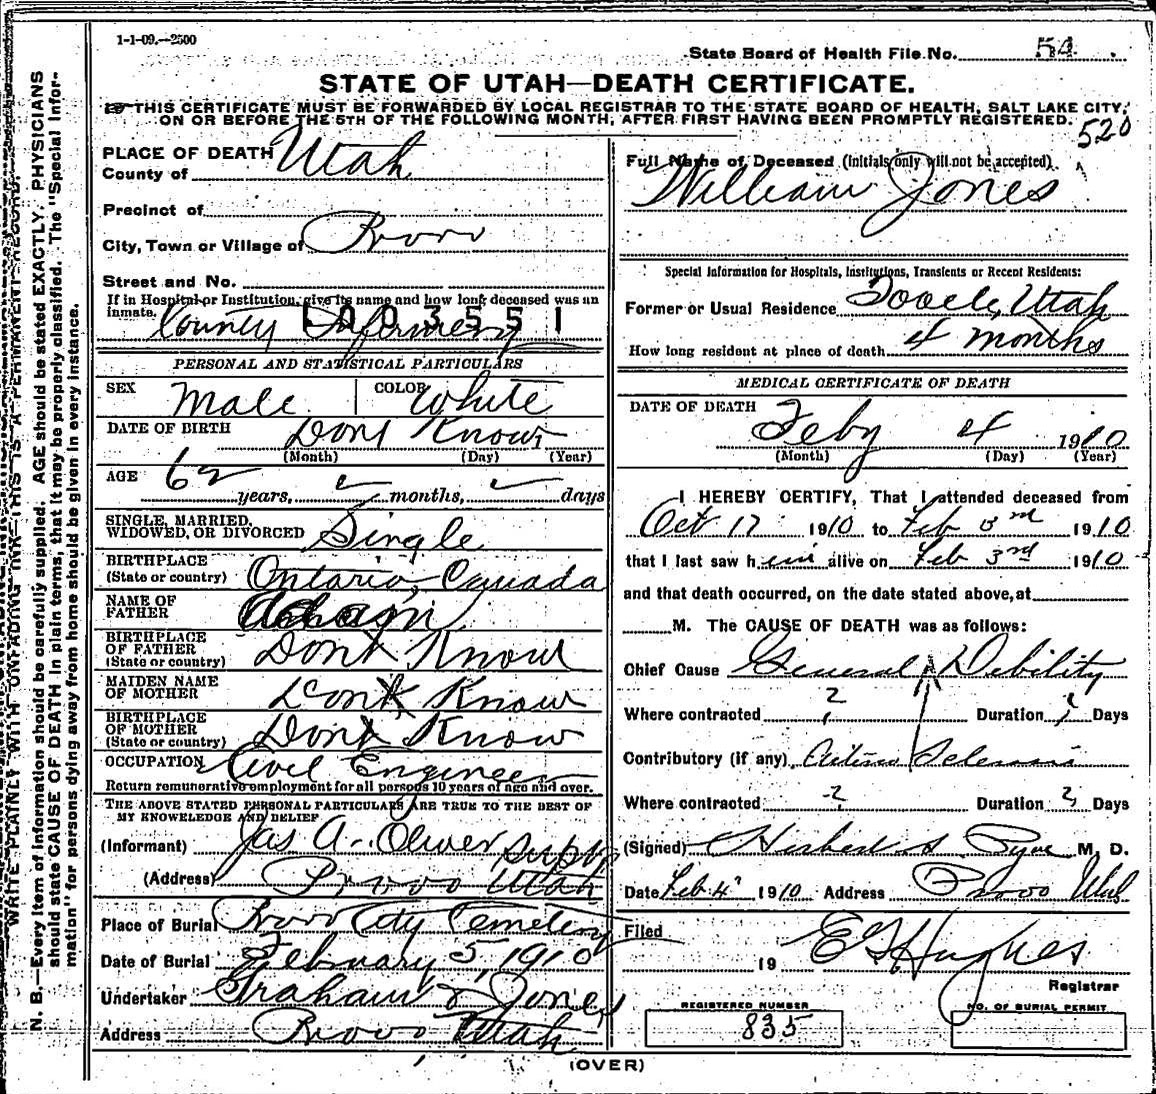 1-1-09.—2500
State Board of Health File No. 54
STATE OF UTAH—DEATH CERTIFICATE.
THIS CERTIFICATE MUST BE FORWARDED BY LOCAL REGISTRAR TO THE STATE BOARD OF HEALTH, SALT LAKE CITY,
ON OR BEFORE THE 5TH OF THE FOLLOWING MONTH, AFTER FIRST HAVING BEEN PROMPTLY REGISTERED.
520
PLACE OF DEATH
County of Utah
Precinct of
City, Town or Village of Provo
Street and No.
If in Hospital or Institution, give its name and how long deceased was an
inmate. County Infirmery
1003551
PERSONAL AND STATISTICAL PARTICULARS
SEX Male COLOR White
DATE OF BIRTH Dont Know
(Month) (Day) (Year)
AGE 62 years, months, days
SINGLE, MARRIED,
WIDOWED, OR DIVORCED Single
BIRTHPLACE
(State or country) Ontario, Canada
NAME OF
FATHER
BIRTHPLACE
OF FATHER
(State or country) Dont Know
MAIDEN NAME
OF MOTHER Dont Know
BIRTHPLACE
OF MOTHER
(State or country) Dont Know
OCCUPATION Civil Engineer
Return remunerative employment for all persons 10 years of age and over.
THE ABOVE STATED PERSONAL PARTICULARS ARE TRUE TO THE BEST OF
MY KNOWLEDGE AND BELIEF
(Informant) Jas A. Oliver Supt
(Address) Provo Utah
Place of Burial Provo City Cemetery
Date of Burial February 5, 1910
Undertaker Graham & Jones
Address Provo Utah
Full Name of Deceased (Initials only will not be accepted)
William Jones
Special Information for Hospitals, Institutions, Transients or Recent Residents:
Former or Usual Residence Tooele, Utah
How long resident at place of death 4 months
MEDICAL CERTIFICATE OF DEATH
DATE OF DEATH
Feby 4 1910
(Month) (Day) (Year)
I HEREBY CERTIFY, That I attended deceased from
Oct 17 1910 to Feb 3rd 1910
that I last saw him alive on Feb 3rd 1910
and that death occurred, on the date stated above, at
M. The CAUSE OF DEATH was as follows:
Chief Cause General Debility
Where contracted ? Duration ? Days
Contributory (if any)
Where contracted ? Duration ? Days
(Signed) Herbert S. Pyne M. D.
Date Feb 4 1910 Address Provo Utah
Filed
19 E G Hughes
Registrar
REGISTERED NUMBER
835
NO. OF BURIAL PERMIT
(OVER)
WRITE PLAINLY WITH UNFADING INK—THIS IS A PERMANENT RECORD.
N. B.—Every item of information should be carefully supplied. AGE should be stated EXACTLY. PHYSICIANS
should state CAUSE OF DEATH in plain terms, that it may be properly classified. The "Special Infor-
mation" for persons dying away from home should be given in every instance.